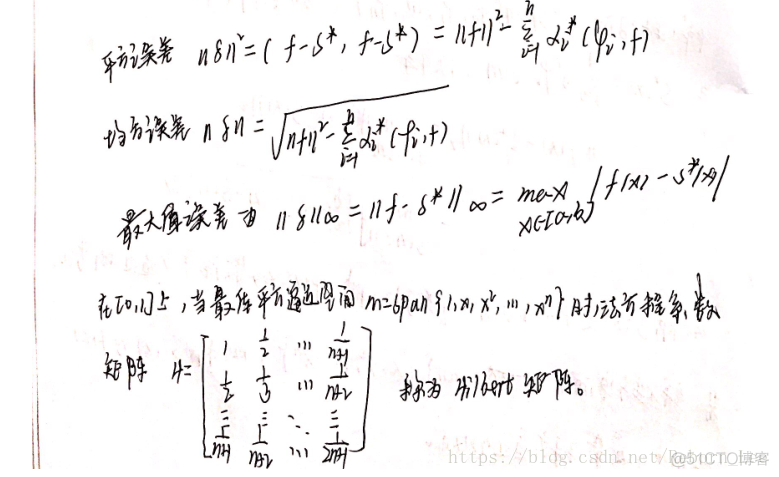 平方误差 ||δ||² = (f-S*, f-S*) = ||f||² - Σ_{i=1}^{n} α_i* (φ_i, f)
均方误差 ||δ|| = √(||f||² - Σ_{i=1}^{n} α_i* (φ_i, f))
最大值误差 ||δ||∞ = ||f-S*||∞ = max_{x∈[a,b]} |f(x) - S*(x)|
在[0,1]上,当最佳平方逼近空间 M=span{1,x,x²,…,xⁿ}时,法方程系数
矩阵 H= [1 1/2 … 1/(n+1)
1/2 1/3 … 1/(n+2)
⋮ ⋮ ⋱ ⋮
1/(n+1) 1/(n+2) … 1/(2n+1)] 称为 Hilbert 矩阵。
https://blog.csdn.net/
@51CTO博客